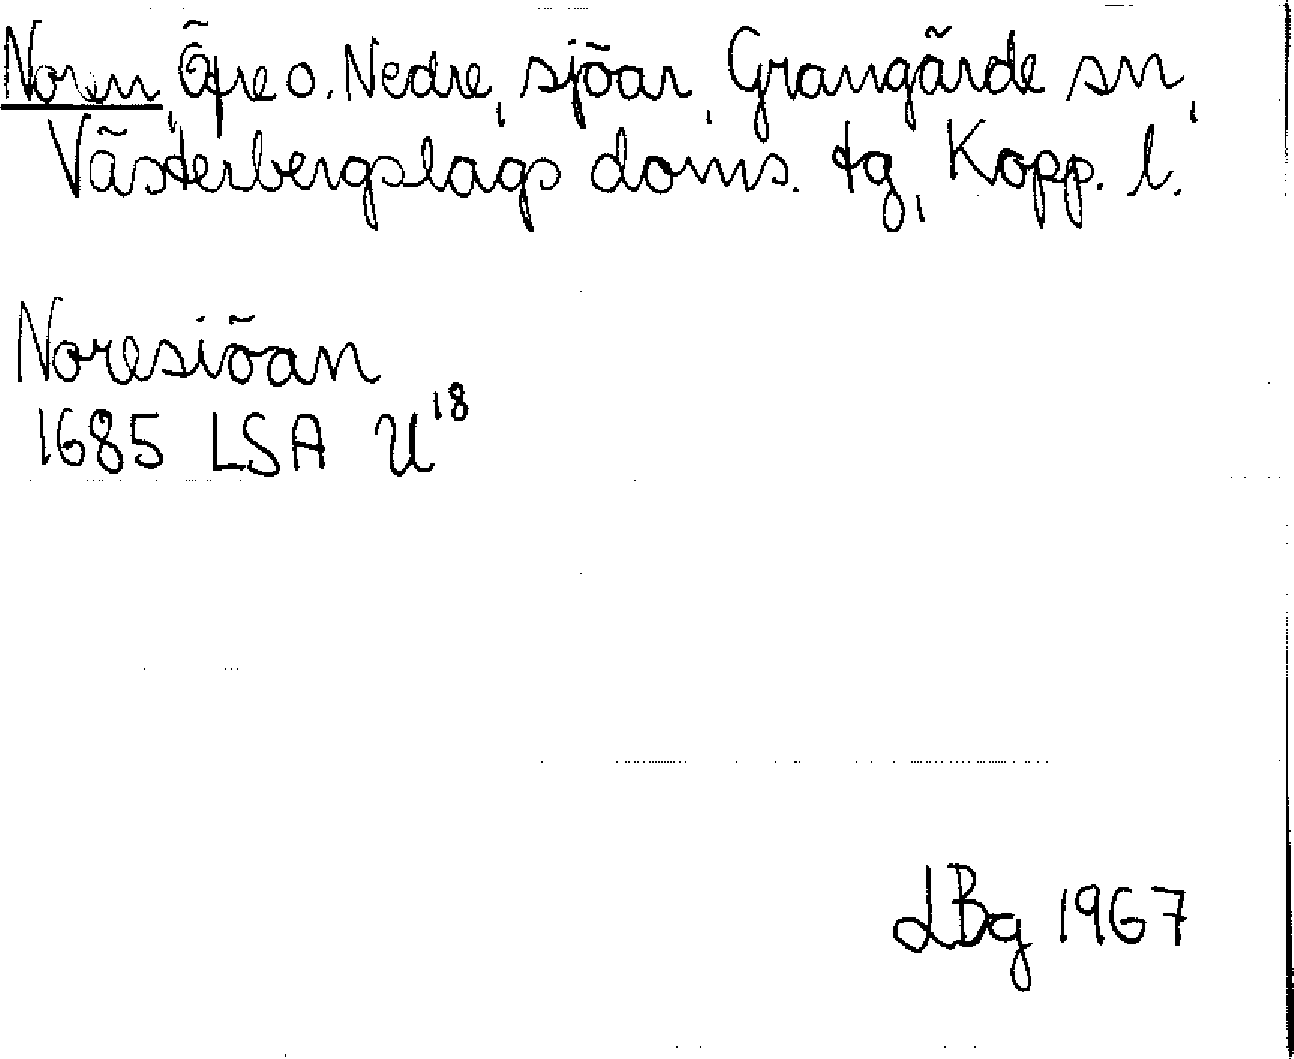 Noren, Övre o. Nedre, sjöar, Grangärde sn,
Västerbergslags doms. tg, Kopp. l.
Noresiöan
1685 LSA U18
LBg 1967